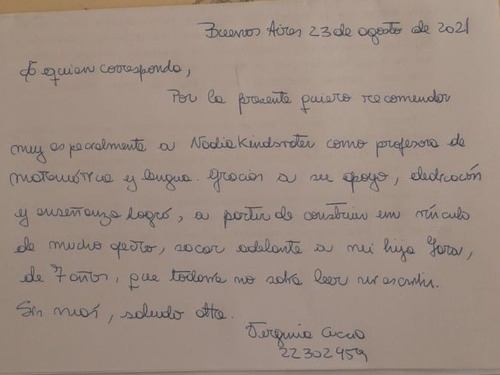 Buenos Aires 23 de agosto de 2021
A quien corresponda,
Por la presente quiero recomendar
muy especialmente a Nadia como profesora de
matemática y lengua. Gracias a su apoyo, dedicación
y enseñanza logró, a partir de construir un vínculo
de mucho afecto, sacar adelante a mi hija
de 7 años, que todavía no sabía leer ni escribir.
Sin más, saludo atte.
Virginia
22302959